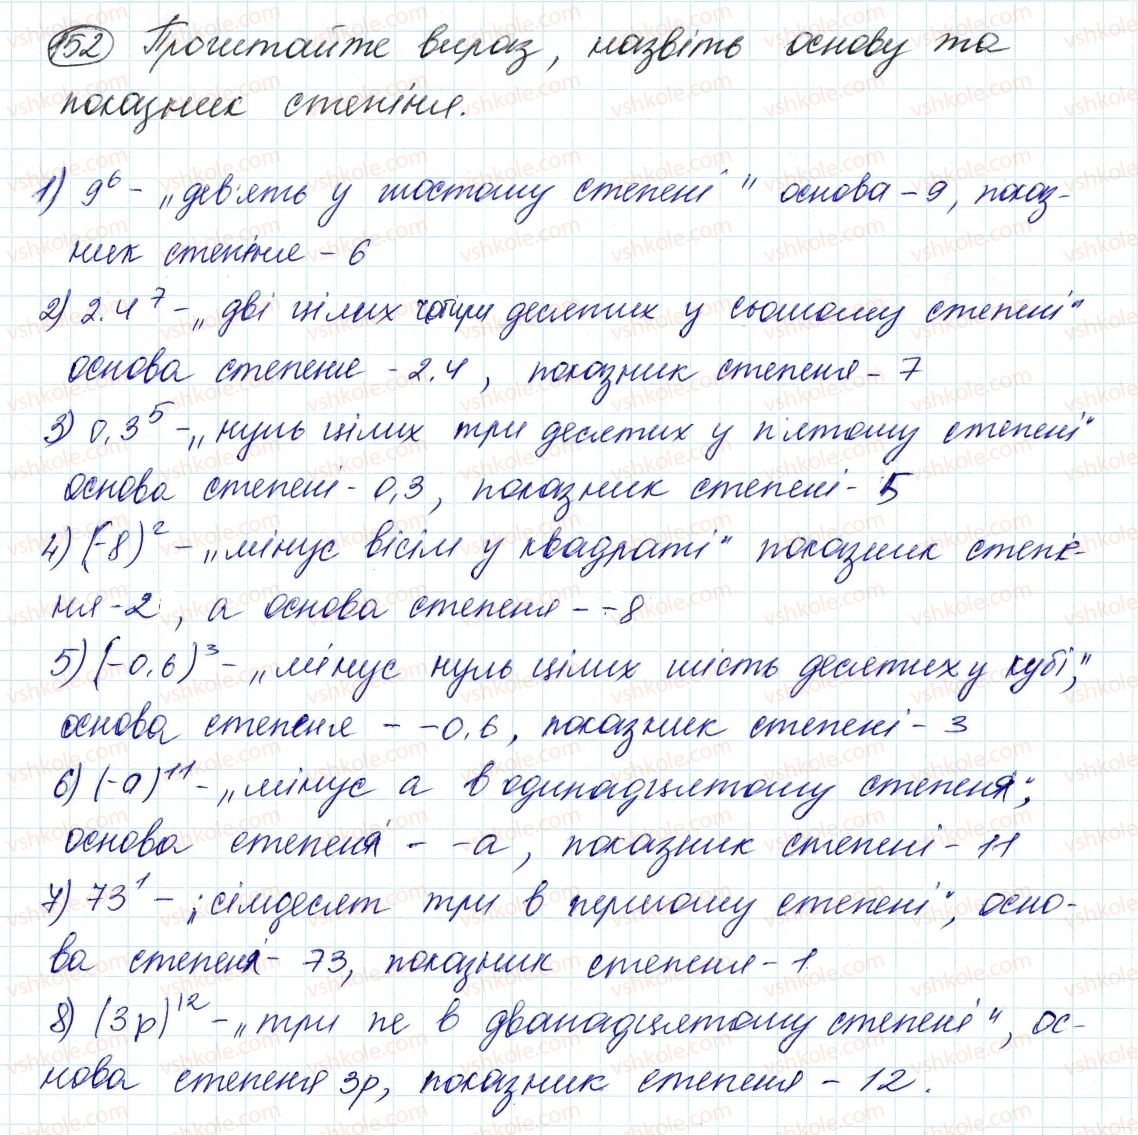 152 Прочитайте вираз, назвіть основу та
показник степіня.
1) 9⁶ - „дев'ять у шостому степені" основа - 9, показ-
ник степіня - 6
2) 2.4⁷ - „дві цілих чотири десятих у сьомому степені"
основа степеня - 2.4, показник степеня - 7
3) 0,3⁵ - „нуль цілих три десятих у п'ятому степені"
основа степені - 0,3, показник степені - 5
4) (-8)² - „мінус вісім у квадраті" показник степі-
ня - 2, а основа степеня - -8
5) (-0,6)³ - „мінус нуль цілих шість десятих у кубі",
основа степеня - -0,6, показник степені - 3
6) (-a)¹¹ - „мінус а в одинадцятому степеня";
основа степеня - -a, показник степені - 11
7) 73¹ - „сімдесят три в першому степені", осно-
ва степеня - 73, показник степеня - 1
8) (3p)¹² - „три пе в дванадцятому степені", ос-
нова степеня 3p, показник степеня - 12.
vshkole.com